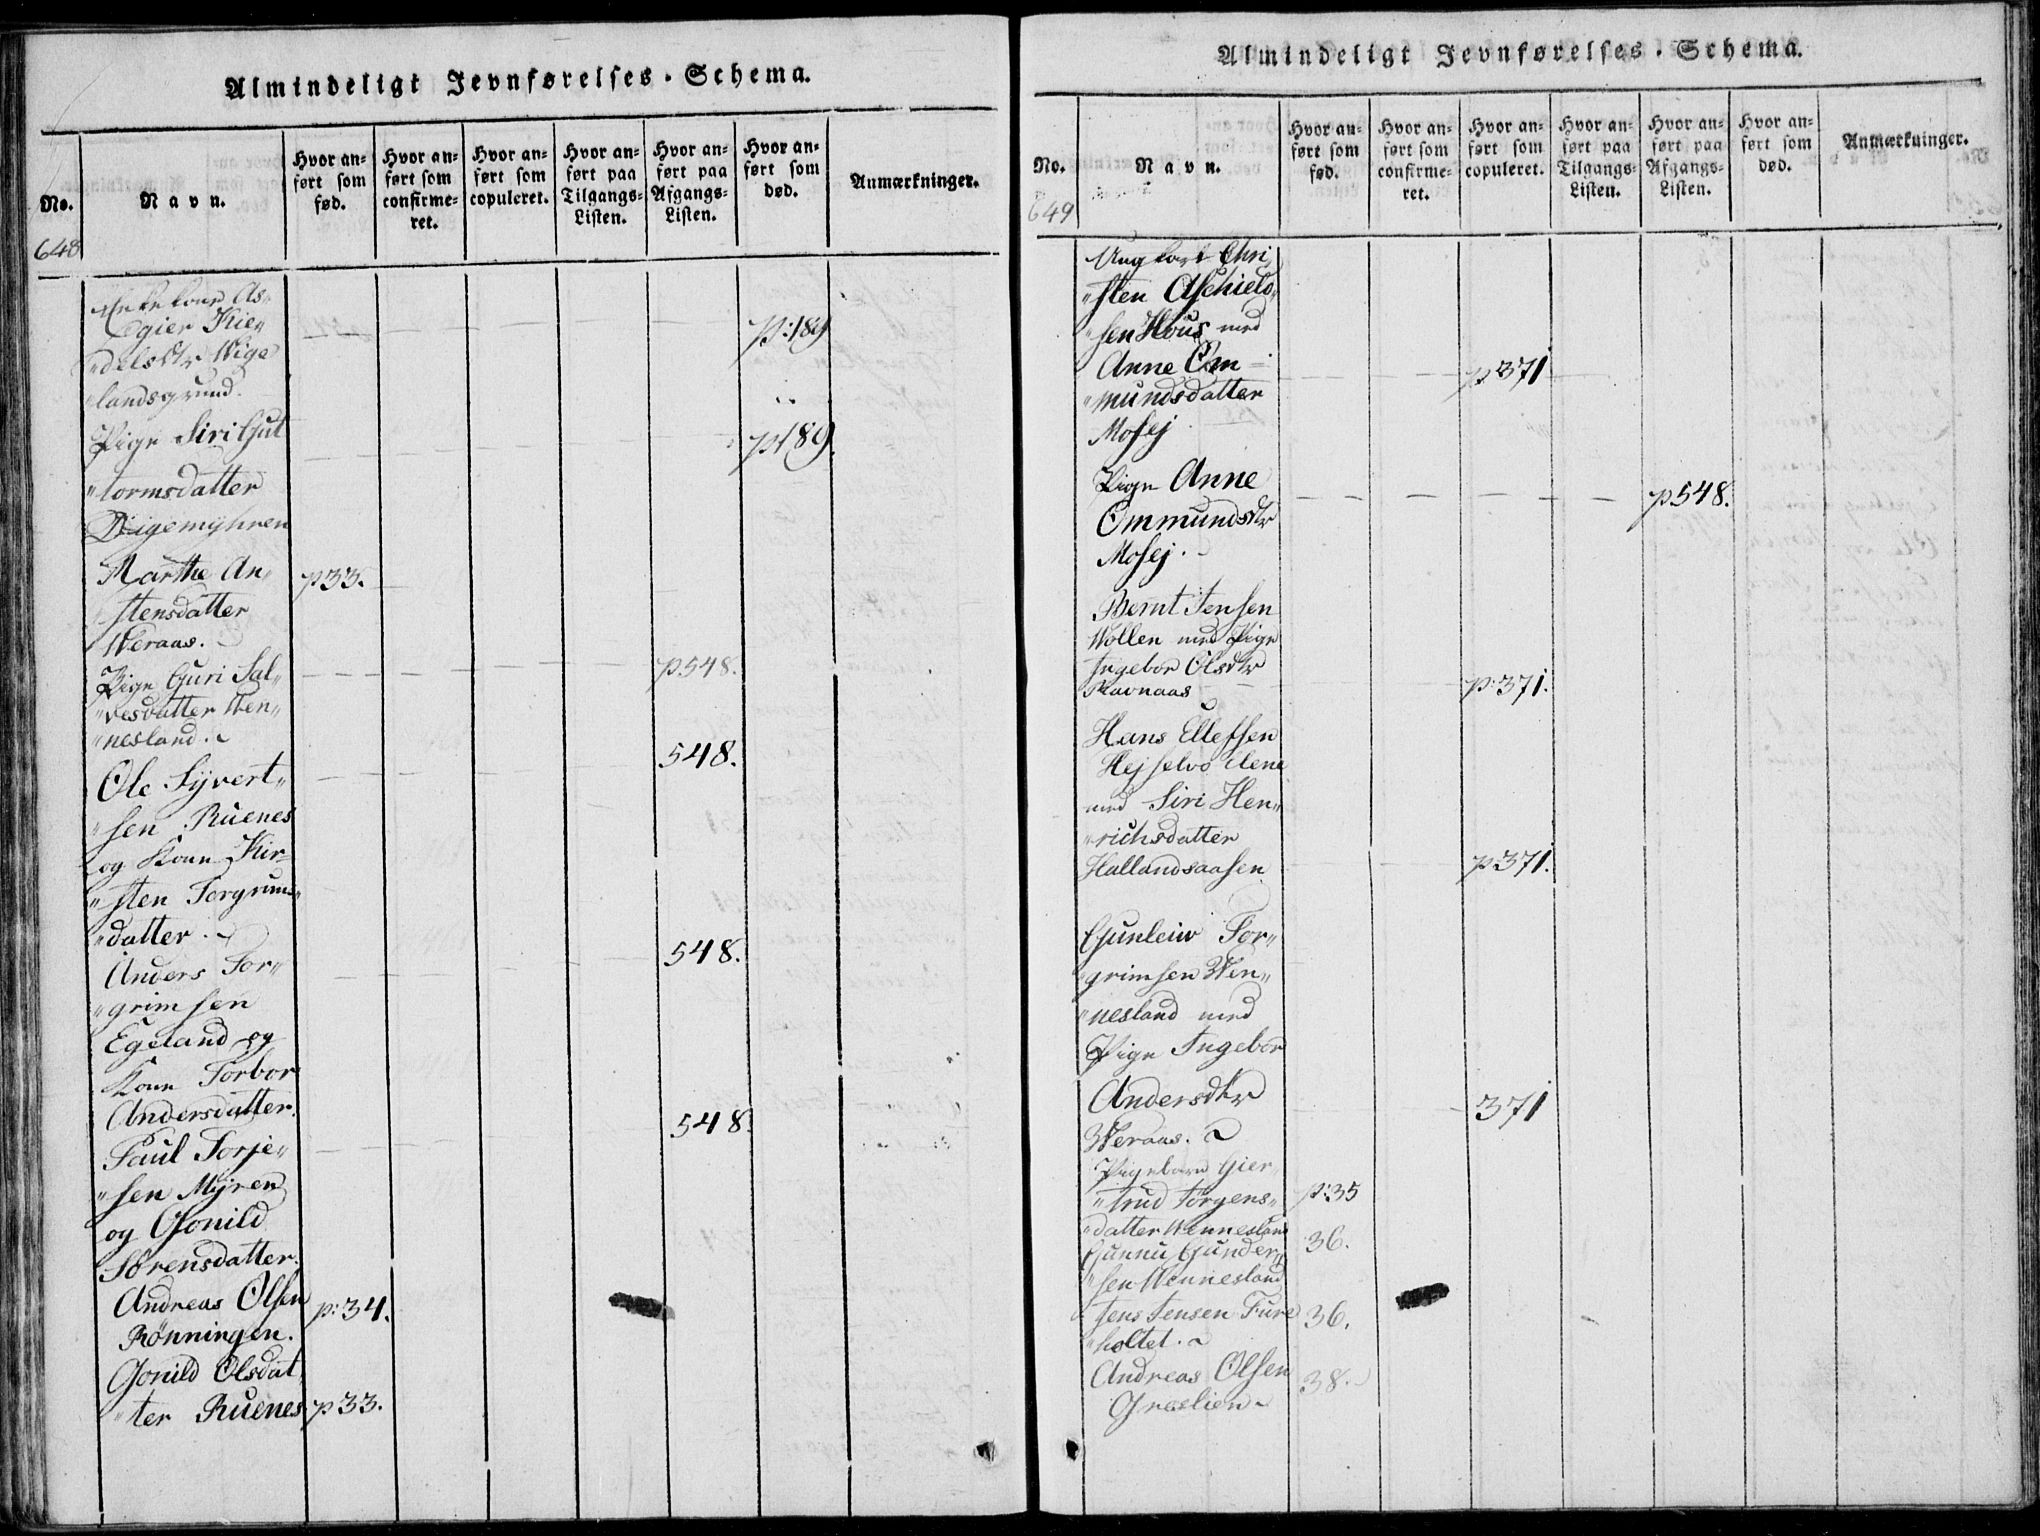 Almindeligt Jevnførelses-Schema.
No.
Navn.
Hvor an-
ført som
fød.
Hvor an-
ført som
confirme-
ret.
Hvor an-
ført som
copuleret.
Hvor an-
ført paa
Tilgangs-
Listen.
Hvor an-
ført paa
Afgangs-
Listen.
Hvor an-
ført som
død.
Anmærkninger.
648
Enkekone As-
gier Kie-
delsdtr Wige
landsgrund. p:189
Pige Siri Gut
tormsdatter p189.
Marthe An-
stensdatter p33.
Weraas.
Pige Guri Sal-
vesdatter Wen-
nesland. p548.
Ole Syvert-
sen Ruenes 548.
og Kone Kir-
sten Torgrims-
datter.
Anders Tor-
grimsen 548.
Egeland og
Kone Torbor
Andersdatter.
Paul Torje-
sen Myren 548.
og Gonild
Sørensdatter.
Andreas Olsen
Rønningen. p:34.
Gonild Olsdat
ter Ruenes p33.
Almindeligt Jevnførelses-Schema.
No.
Navn.
Hvor an-
ført som
fød.
Hvor an-
ført som
confirme-
ret.
Hvor an-
ført som
copuleret.
Hvor an-
ført paa
Tilgangs-
Listen.
Hvor an-
ført paa
Afgangs-
Listen.
Hvor an-
ført som
død.
Anmærkninger.
649
Ungkarl Chri-
sten Aschield-
sen Hous med
Anne Om-
mundsdatter p371
Mosej
Pige Anne
Ommundsdtr p548.
Mosej.
Bernt Jensen
Wollen med Pige
Ingebor Olsdtr
Ravnaas p:371.
Hans Ellefsen
med Siri Hen-
richsdatter
Hallandsaasen p371.
Gunleiw Tor-
grimsen Wen-
nesland med
Pige Ingebor
Andersdtr 371
Weraas.
Pigebarn Gier
trud Jørgens- p:35
datter Wennesland
Gunnu Gunder- 36.
sen Wennesland
Jens Jensen Fure 36.
holtet.
Andreas Olsen 38.
Greslien